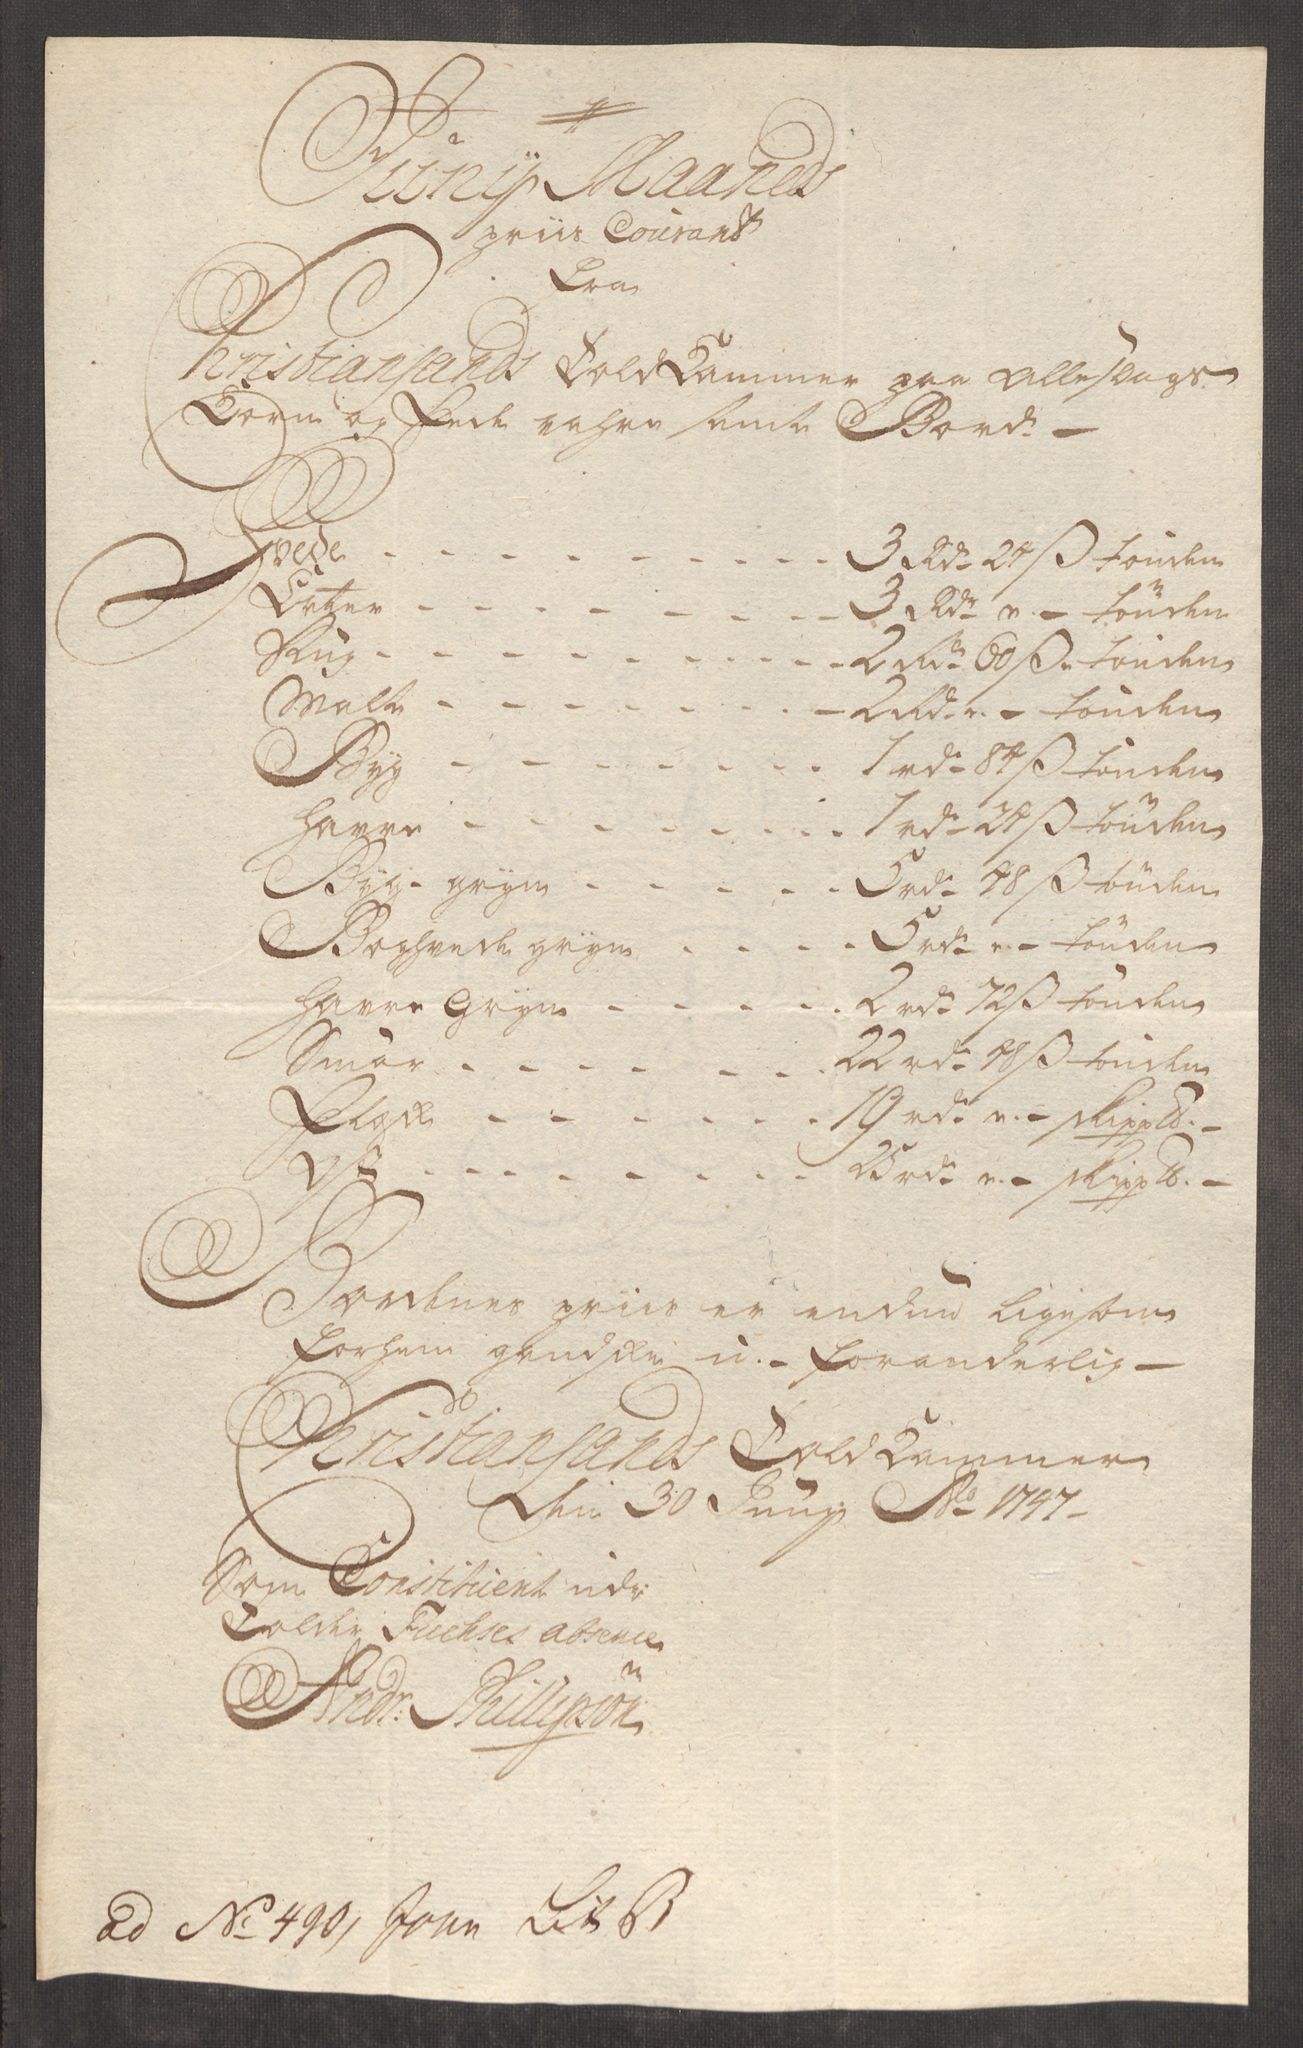 Junij Maaneds
priis Courandt
Fra
Christiansands Told Kammer paa alle slags
Korn og fede vahre samt Bord. —
Hvede - - - - - - - - - 3 Rd. 24 ß tønden
Erter - - - - - - - - - 3 Rd. „ - tønden
Rug - - - - - - - - - 2 Rd. 60 ß. tønden
Malt - - - - - - - - - 2 Rd. „ - tønden
Byg - - - - - - - 1 rd. 84 ß tønden
Havre - - - - - - - - 1 rd. 24 ß tønden
Byg gryn - - - - - 5 rd. 48 ß tønden
Boghvede gryn - - - - 5 rd. „ - tønden
Havre Gryn - - - - - 2 rd. 72 ß tønden
Smør - - - - - - - 22 rd. 48 ß tønden
Flesk - - - - - - - 19 rd. „ - skippd. -
Ost - - - - - - - - rd. „ - skippd. -
Bordenes priis er endnu ligesom
forhen gandske u-foranderlig —
Christiansands Told Kammer
den 30 Junij Ao 1747 -
Som Constituert udi
Tolder Fuchses absence
Andr. Phillipsøn
ad No 490, Litr B